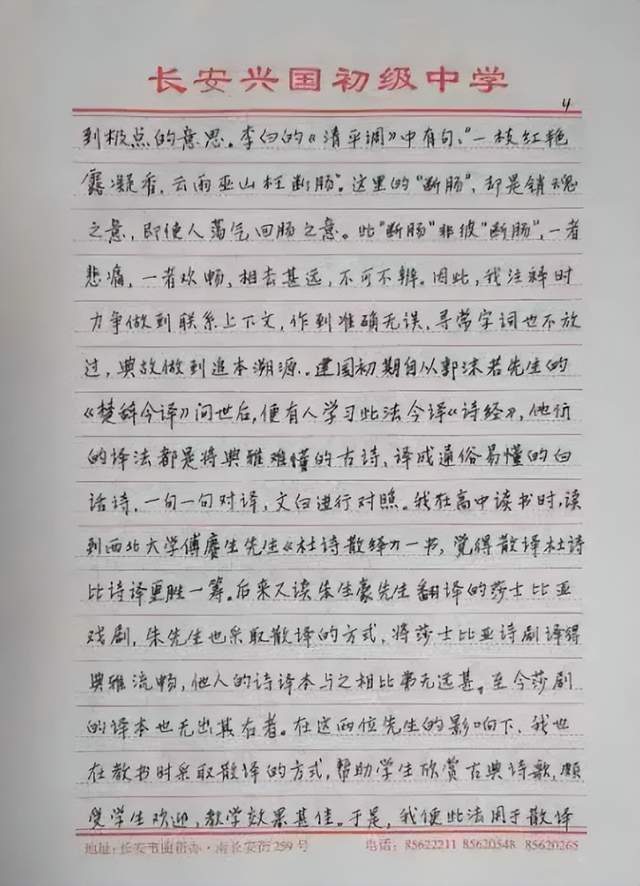 长安兴国初级中学
4
到极点的意思。李白的《清平调》中有句:"一枝红艳
露凝香，云雨巫山枉断肠"。这里的"断肠"，却是销魂
之意，即使人荡气回肠之意。此"断肠"非彼"断肠"，一者
悲痛，一者欢畅，相去甚远，不可不辨。因此，我注释时
力争做到联系上下文，作到准确无误，寻常字词也不放
过，典故做到追本溯源。建国初期自从郭沫若先生的
《楚辞今译》问世后，便有人学习此法今译《诗经》，他们
的译法都是将典雅难懂的古诗、译成通俗易懂的白
话诗，一句一句对译，文白进行对照。我在高中读书时，读
到西北大学傅庚生先生《杜诗散绎》一书，觉得散译杜诗
比诗译更胜一筹。后来又读朱生豪先生翻译的莎士比亚
戏剧，朱先生也采取散译的方式，将莎士比亚诗剧译得
典雅流畅，他人的诗译本与之相比弗无远甚。至今莎剧
的译本也无出其右者。在这两位先生的影响下，我也
在教书时采取散译的方式，帮助学生欣赏古典诗歌，颇
受学生欢迎，教学效果甚佳。于是，我便此法用于散译
地址:长安韦曲街办·南长安街259号 电话:85622211 85620548 85620265